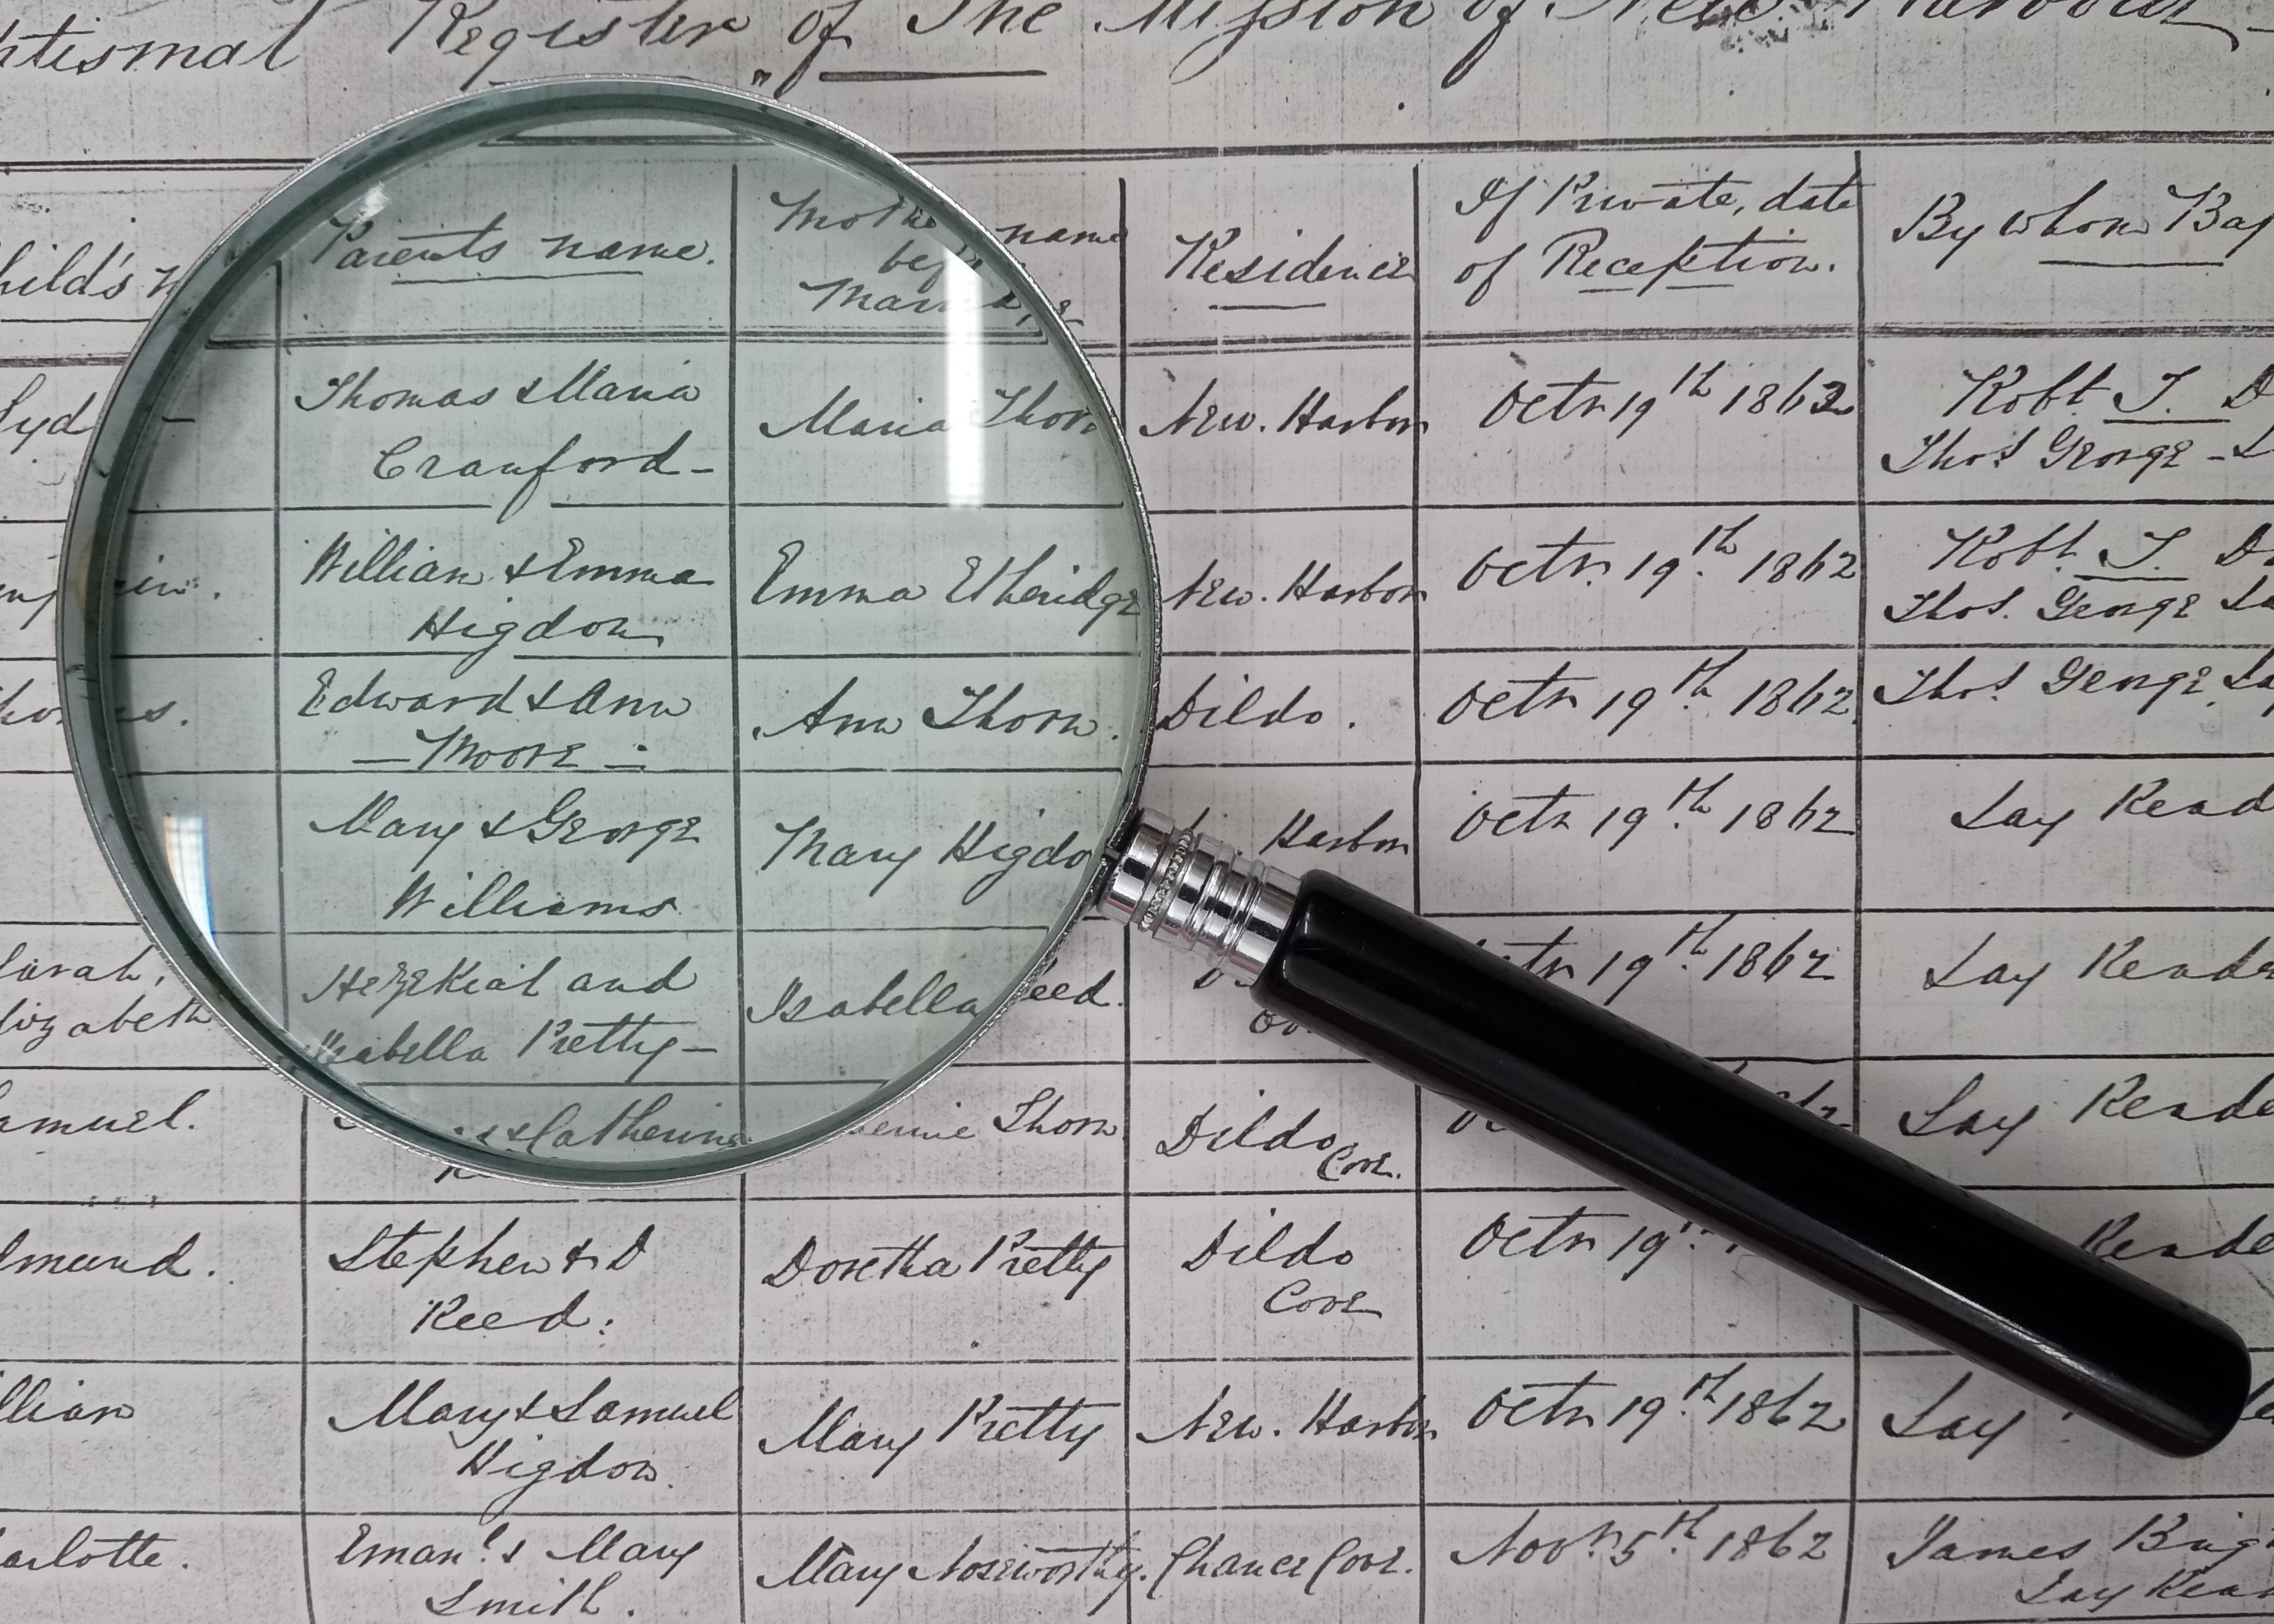 Register of The Mission of New Harbour
Parents name.
name
Residence
If Private, date
of Reception.
By whom
Thomas & Maria
Cranford -
Maria Thorn
New. Harbor
Octr 19th 1862
Robt. J.
Thos George
William & Emma
Higdon
Emma Etheridge
New. Harbor
Octr. 19th 1862
Robt. J.
Thos. George
Edward & Ann
- Moore -
Ann Thorn.
Dildo.
Octr 19th 1862
Thos George
Mary & George
Williams
Mary
Harbor
Octr 19th 1862
Lay
Sarah,
Elizabeth
Hezekial and
Isabella Pretty -
Isabella
19th 1862
Lay
Samuel.
& Catherine
Thorn
Dildo
Cove.
Lay
Stephen & D
Reed:
Doretha Pretty
Dildo
Cove
Octr 19
Mary & Samuel
Higdon
Mary Pretty
New. Harbor
Octr 19th 1862
Lay
Emanl. & Mary
Smith.
Mary Noseworthy.
Chance Cove.
Novr. 5th 1862
James
Lay